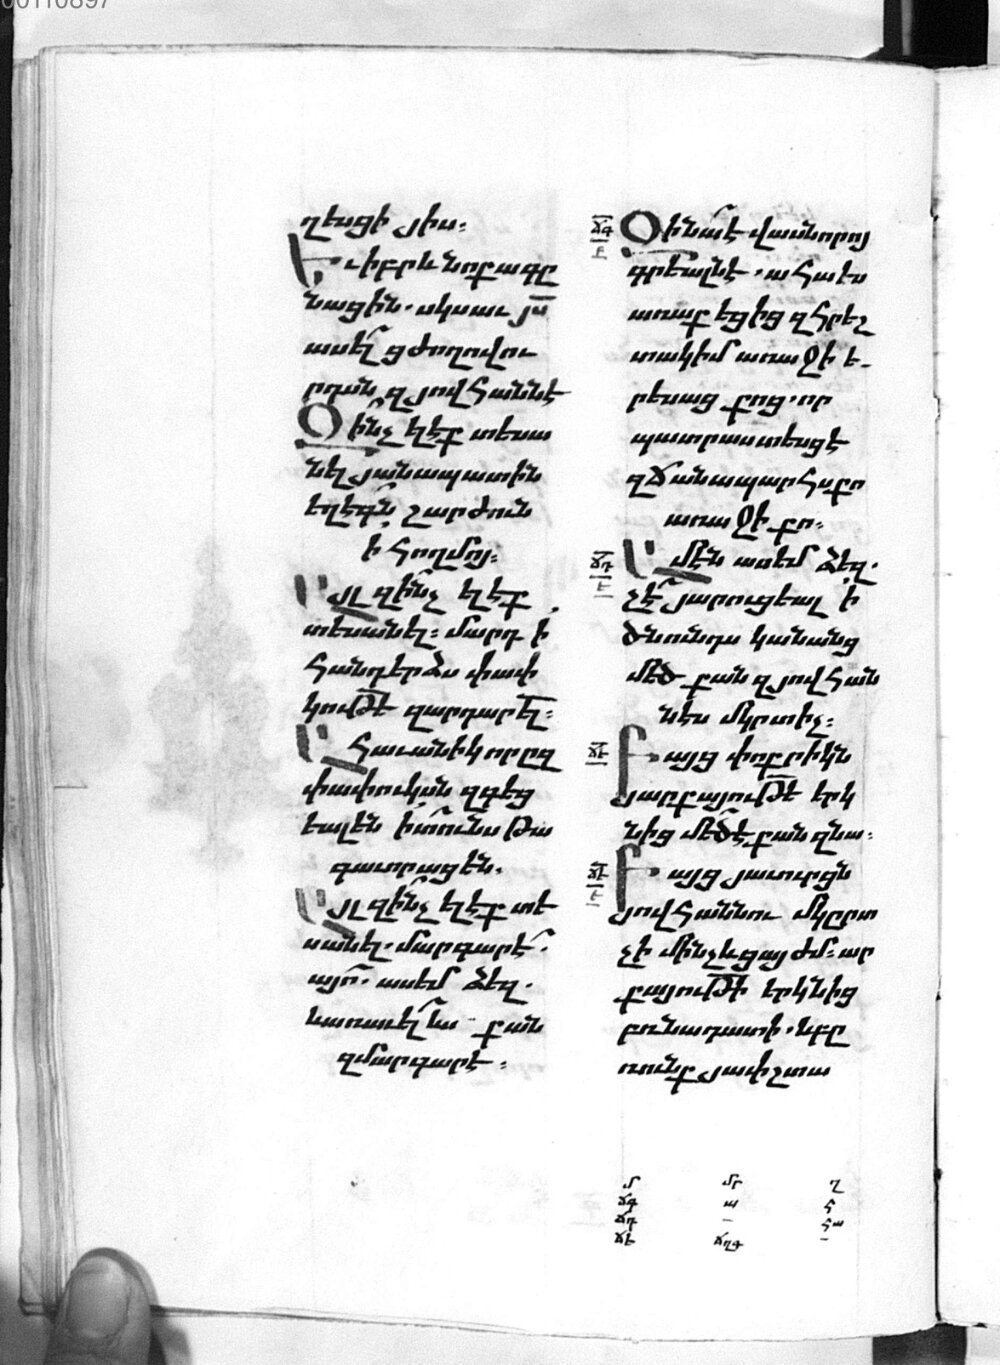 00110897
ղեսցի յիս։
Եւ իբրև նոքա գը
նացին. սկսաւ յս
ասել ցժողովու
րդսն զյովհաննէ
Զինչ ելէք տեսա
նել յանապատին
եղէգն շարժուն
ի հողմոյ։
Այլ զինչ ելէք
տեսանել։ մարդ ի
հանդերձս փափ
կութե զարդարել։
Ահաւանիկ որըզ
փափուկսն զգեց
եալեն ի տունս թա
գաւորաց են.
Այլ զինչ ելէք տե
սանել. մարգարէ.
այո. ասեմ ձեզ.
և առաւել ևս քան
զմարգարէ։
ճգ
Զի նա է վասնորոյ
գրեալնէ. ահա ես
առաքեցից զհրեշ
տակ իմ առաջի ե
րեսաց քոց. որ
պատրաստեսցէ
զճանապարհս քո
առաջի քո։
ճդ
Ամէն ասեմ ձեզ.
չէ յարուցեալ ի
ծնունդս կանանց
մեծ քան զյովհան
նէս մկրտիչ։
ճե
Բայց փոքրիկն
յարքայութե երկ
նից մեծ է քան զնա։
ճե
Բայց յաւուրցն
յովհաննու մկըրտ
չի մինչև ցայժմ։ ար
քայութի երկնից
բռնադատի. և բը
ռունք յափշտա
մ մր ղ
ճգ ա հ
ճդ հա
ճե ճղգ